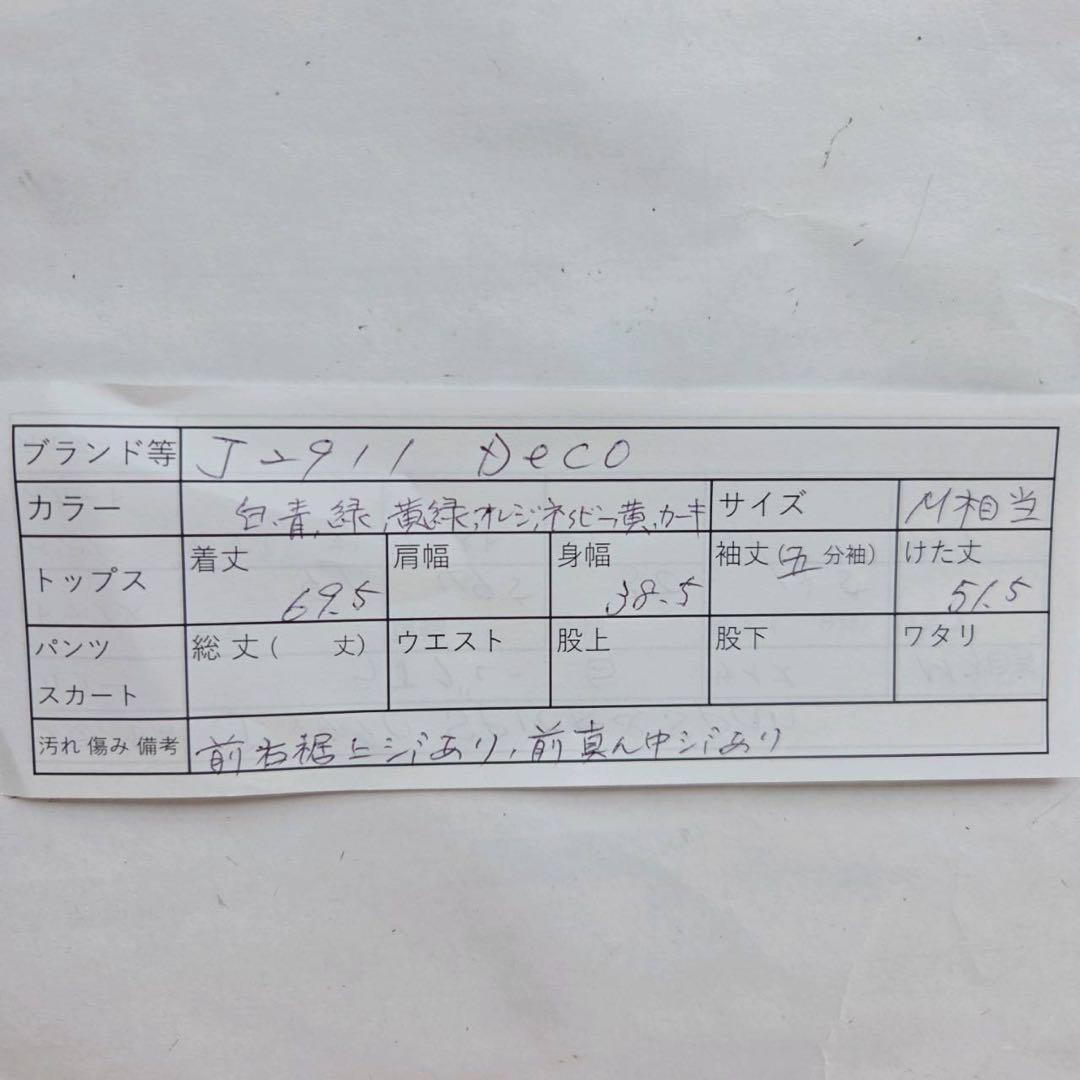 ブランド等 J-911 Deco
カラー 白,青,緑,黄緑,オレンジ,ネイビー,黄,カーキ サイズ M相当
トップス 着丈 69.5 肩幅 身幅 38.5 袖丈(五分袖) けた丈 51.5
パンツ スカート 総丈( 丈) ウエスト 股上 股下 ワタリ
汚れ 傷み 備考 前右裾上シミあり,前真ん中シミあり